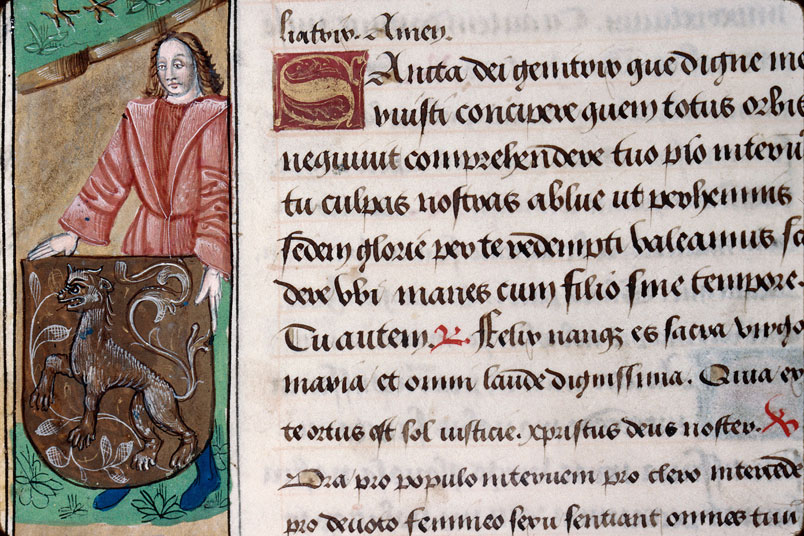 liatrix. Amen.
Sancta dei genitrix que digne me
ruisti concipere quem totus orbis
nequiuit comprehendere tuo pio interuē
tu culpas nostras ablue ut perhennis
sedem glorie per te redempti valeamus scā
dere vbi manes cum filio sine tempore.
Tu autem. R. Felix nanqz es sacra virgo
maria et omni laude dignissima. Quia ex
te ortus est sol iusticie. xpristus deus noster. V
Ora pro populo interueni pro clero intercede
pro deuoto femineo sexu sentiant omnes tuū